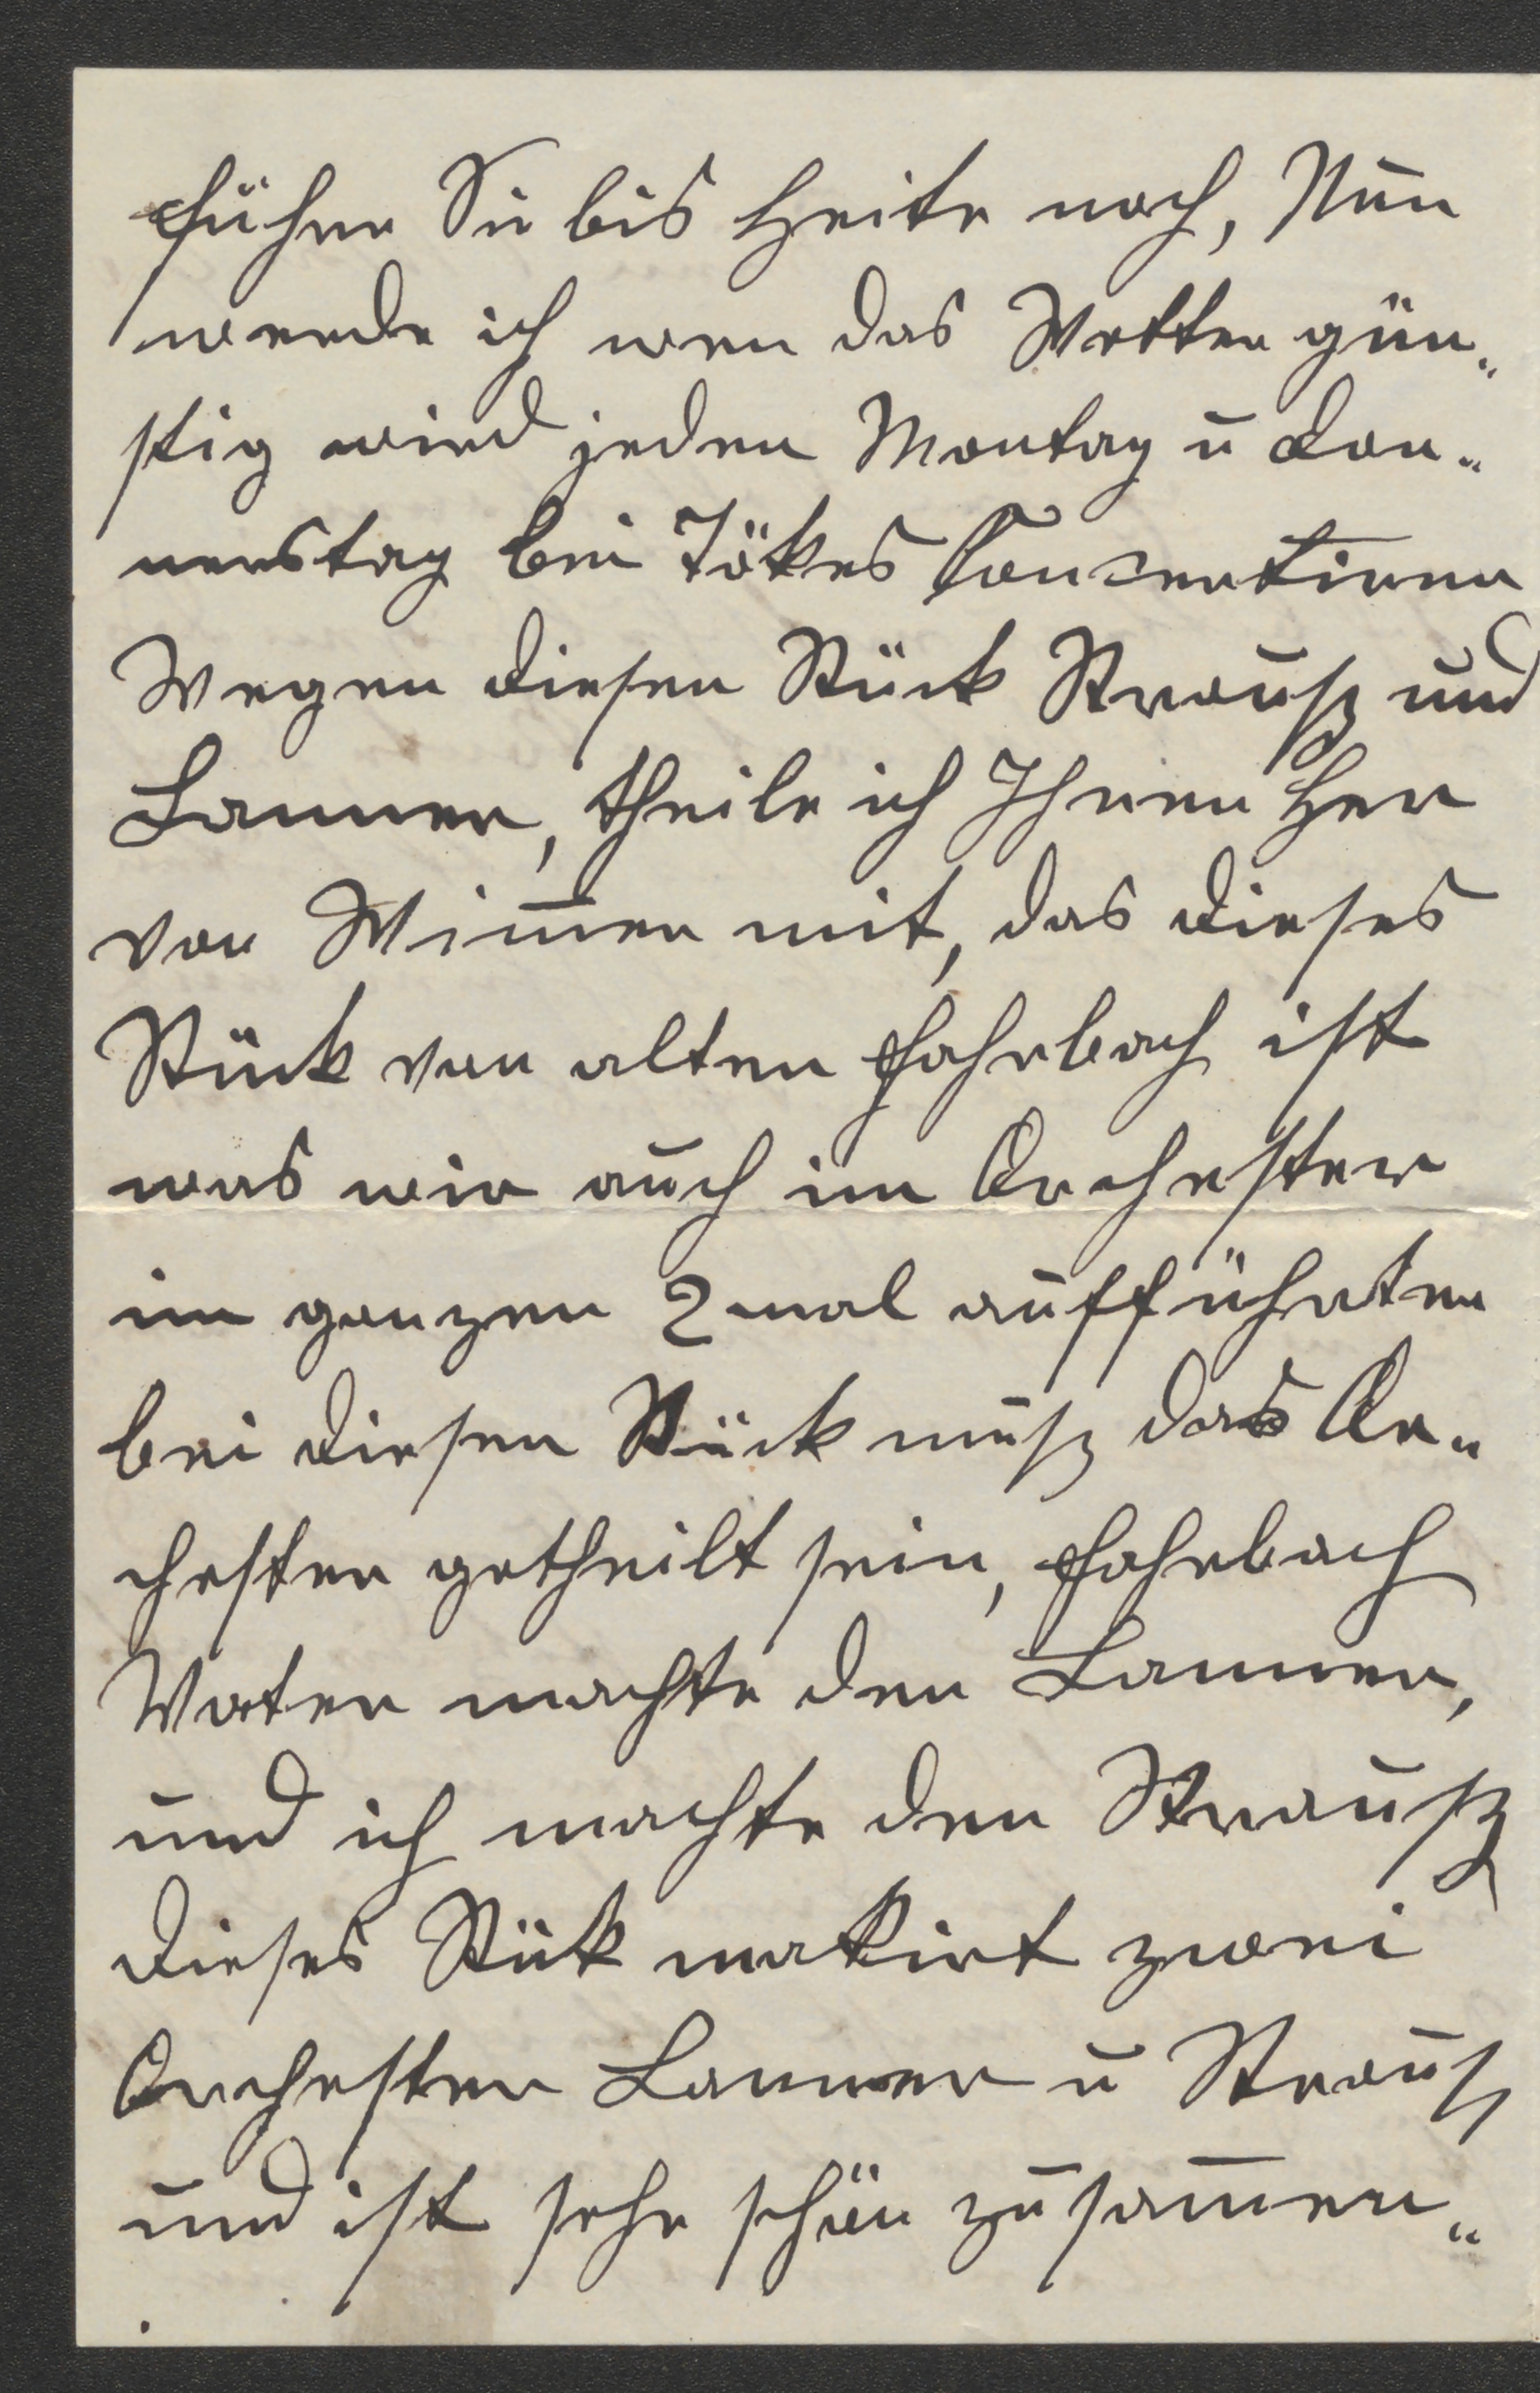 führe Sie bis Heite noch, Nun
werde ich wen das Wetter gün„
stig wird jeden Montag u Don„
nerstag bei Tökes Conzertiren
Wegen diesen Stück Strauß und
Lanner, theile ich Ihnen Her
von Wim̄er mit, das dieses
Stück von alten Fahrbach ist
was wir auch im Orchester
im ganzen 2mal aufführten
bei diesen Stück muß das Or„
chester getheilt sein, Fahrbach
Vater machte den Lanner,
und ich machte den Strauß
dieses Stük makirt zwei
Orchester Lanner u Strauß
und ist sehr schön zusam̄en„